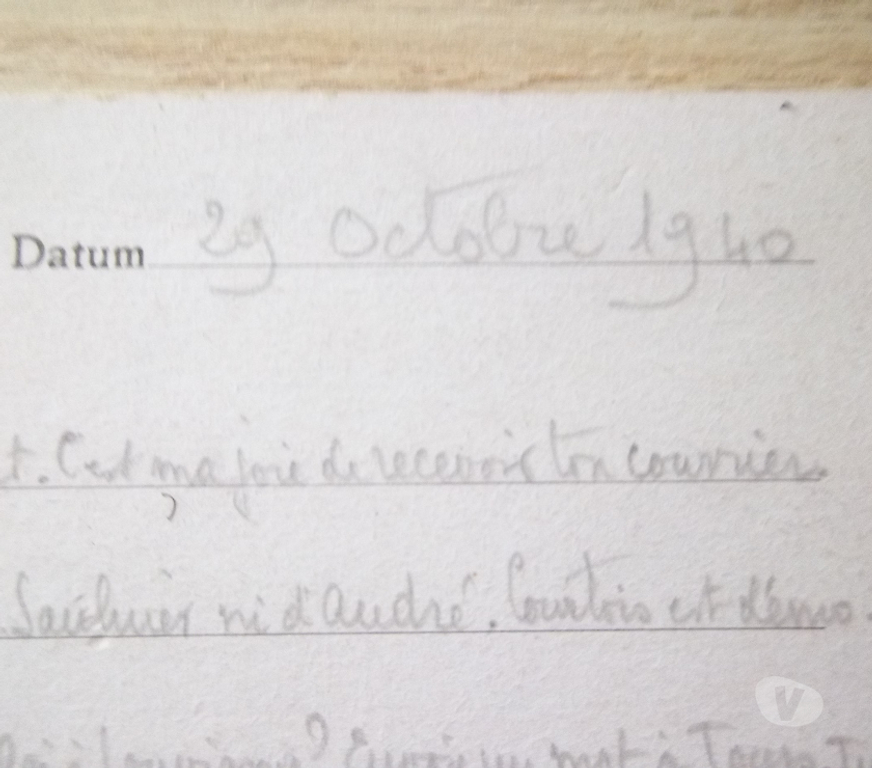 Datum 29 Octobre 1940
t. C'est ma joie de recevoir ton courrier.
Saulnier ni d'André. Courtois est démo
? Ecurie un mot à
V